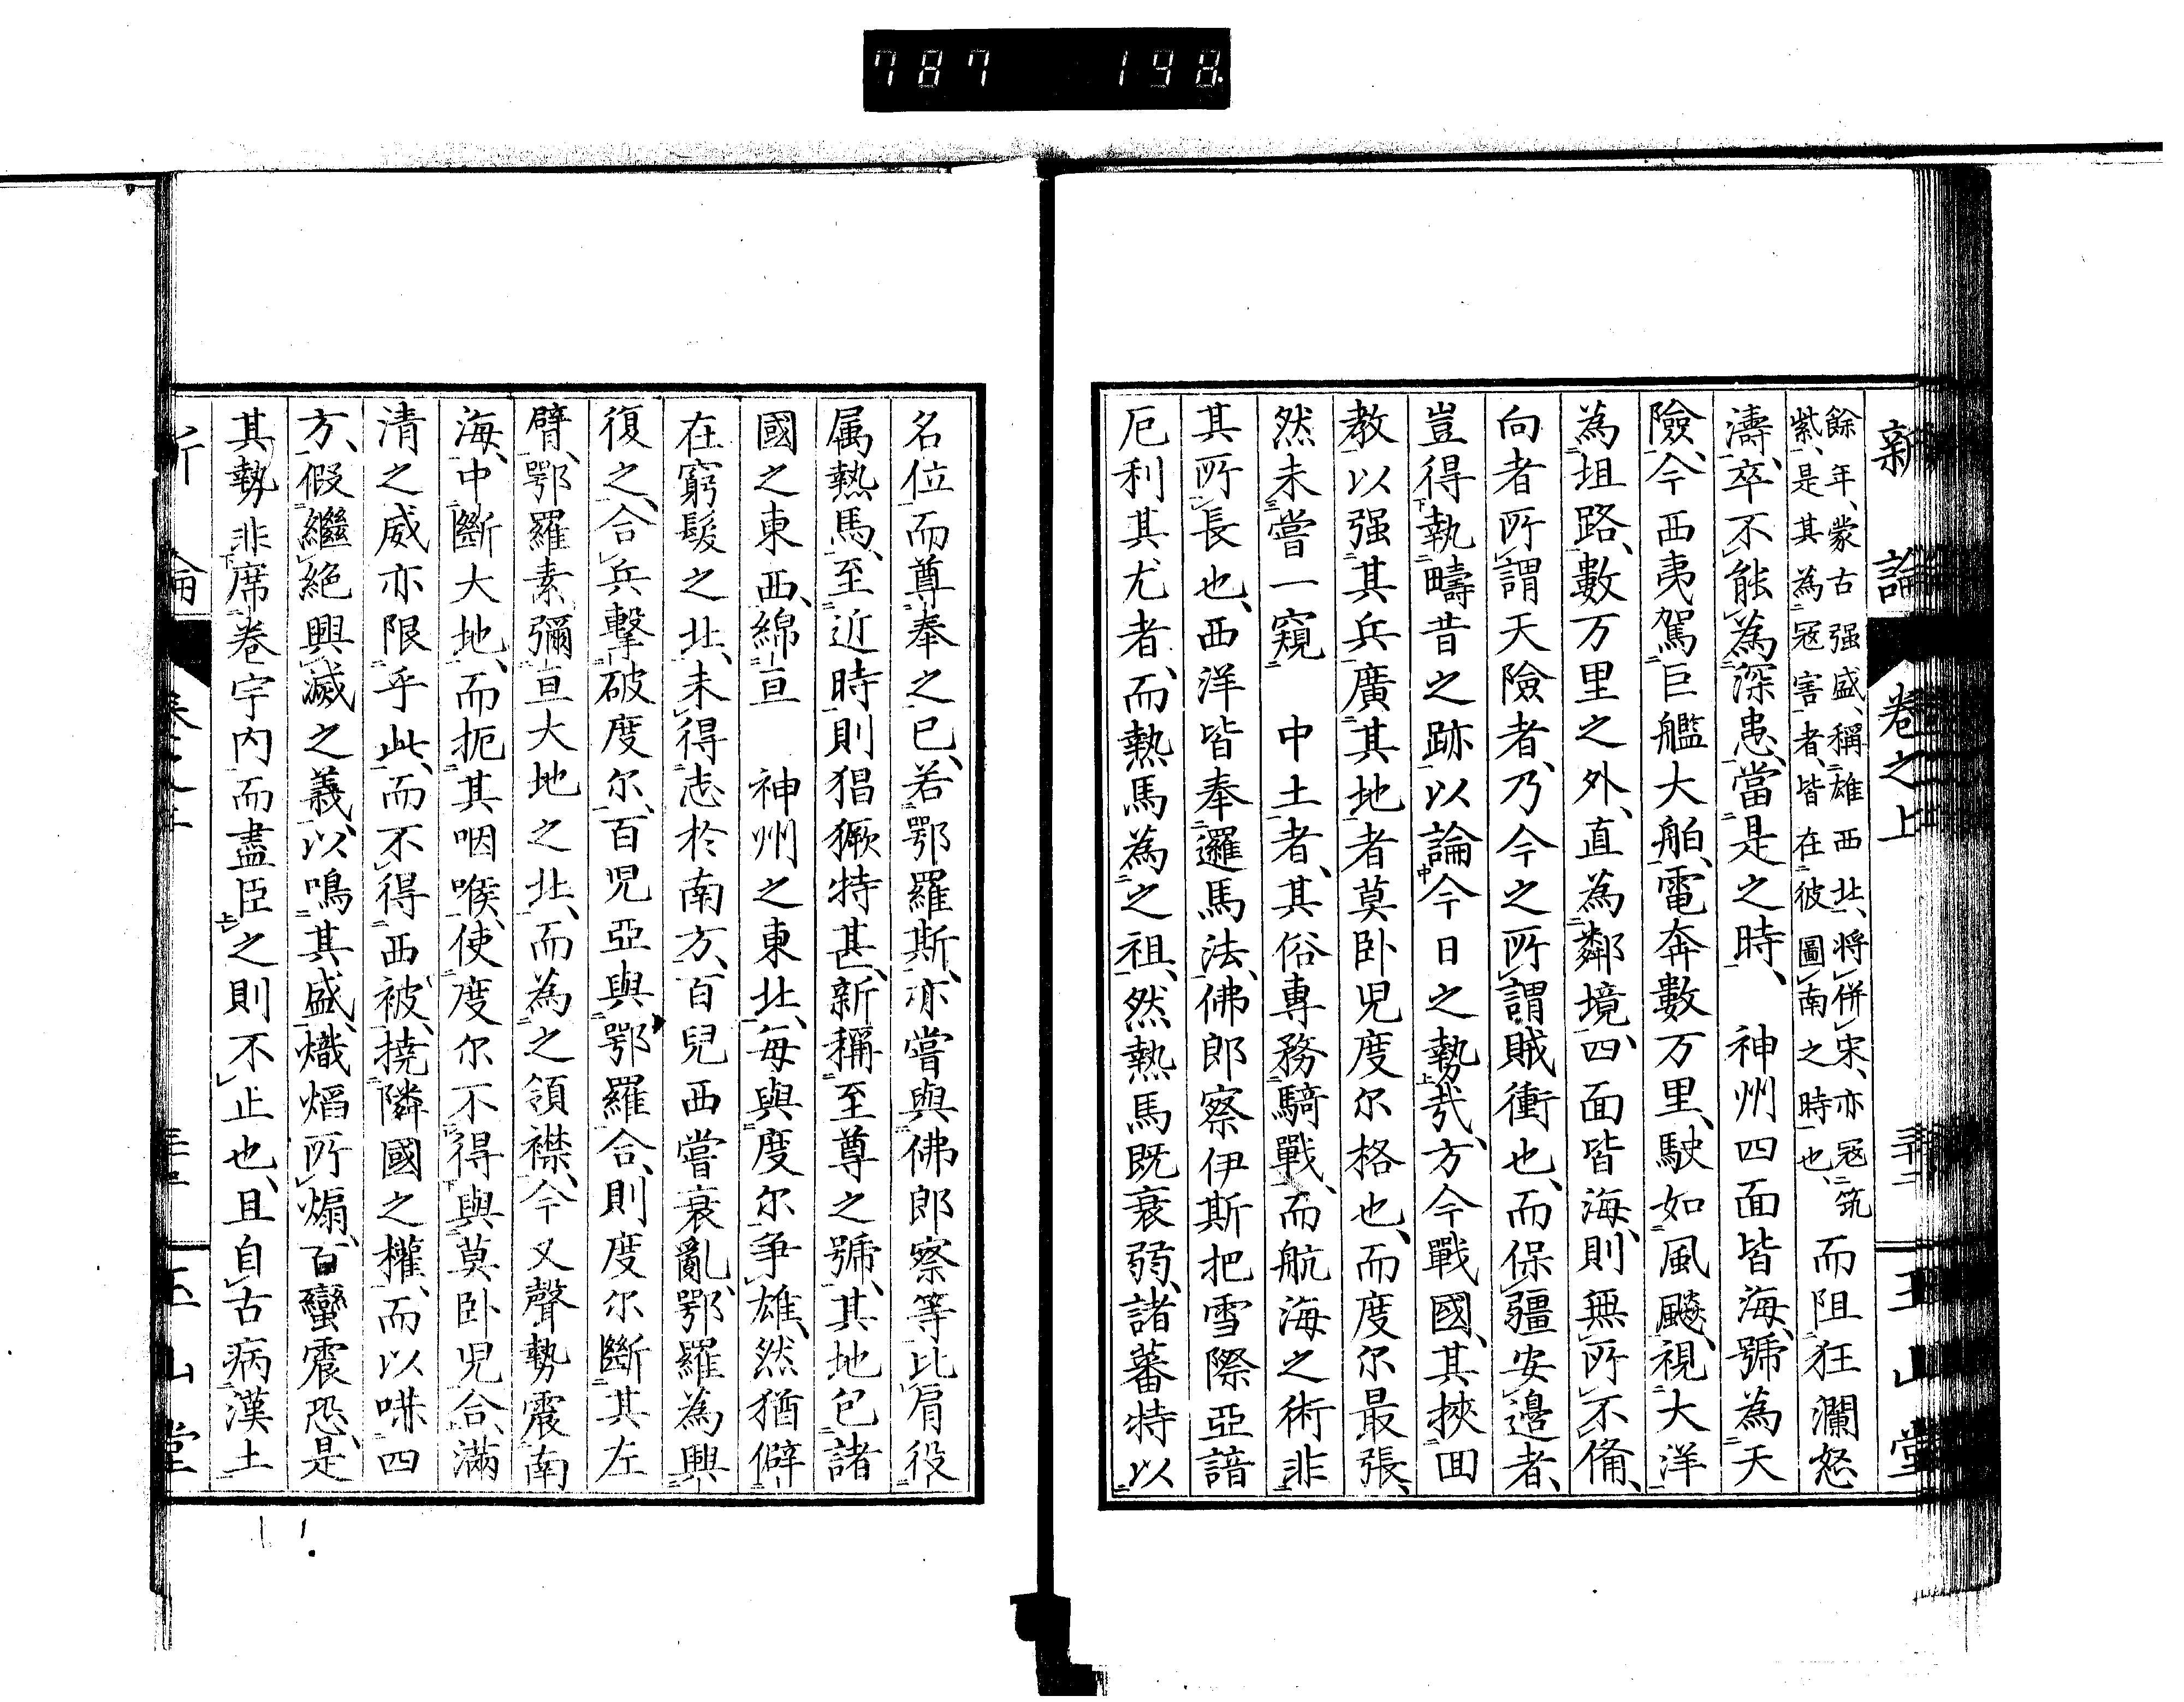 787 198
新論 卷之上 三十二 玉山堂
餘年、蒙古强盛、稱雄西北、將併宋、亦寇筑
紫、是其為寇害者、皆在彼圖南之時也、
而阻狂瀾怒
濤、卒不能為深患、當是之時、 神州四面皆海、號為天
險、今西夷駕巨艦大舶、電奔數万里、駛如風飈、視大洋
為坦路、數万里之外、直為鄰境、四面皆海、則無所不備、
向者所謂天險者、乃今之所謂賊衝也、而保疆安邊者、
豈得執疇昔之跡、以論今日之勢哉、方今戰國、其挾回
教、以强其兵廣其地者莫卧児度尔格也、而度尔最張、
然未嘗一窺 中土者、其俗專務騎戰、而航海之術非
其所長也、西洋皆奉邏馬法、佛郎察伊斯把雪際亞諳
厄利其尤者、而熱馬為之祖、然熱馬既衰弱、諸蕃特以
名位而尊奉之已、若鄂羅斯、亦嘗與佛郎察等比肩役
属熱馬、至近時則猖獗特甚、新稱至尊之號、其地包諸
國之東西、綿亘 神州之東北、每與度尔爭雄、然猶僻
在窮髮之北、未得志於南方、百兒西嘗衰亂、鄂羅為興
復之、合兵擊破度尔、百児亞與鄂羅合、則度尔斷其左
臂、鄂羅素彌亘大地之北、而為之領襟、今又聲勢震南
海、中斷大地、而扼其咽喉、使度尔不得與莫卧児合、滿
清之威亦限乎此、而不得西被、撓隣國之權、而以啑四
方、假繼絕興滅之義、以鳴其盛、熾熖所煽、百蠻震恐、是
其勢非席卷宇內而盡臣之則不止也、且自古病漢土